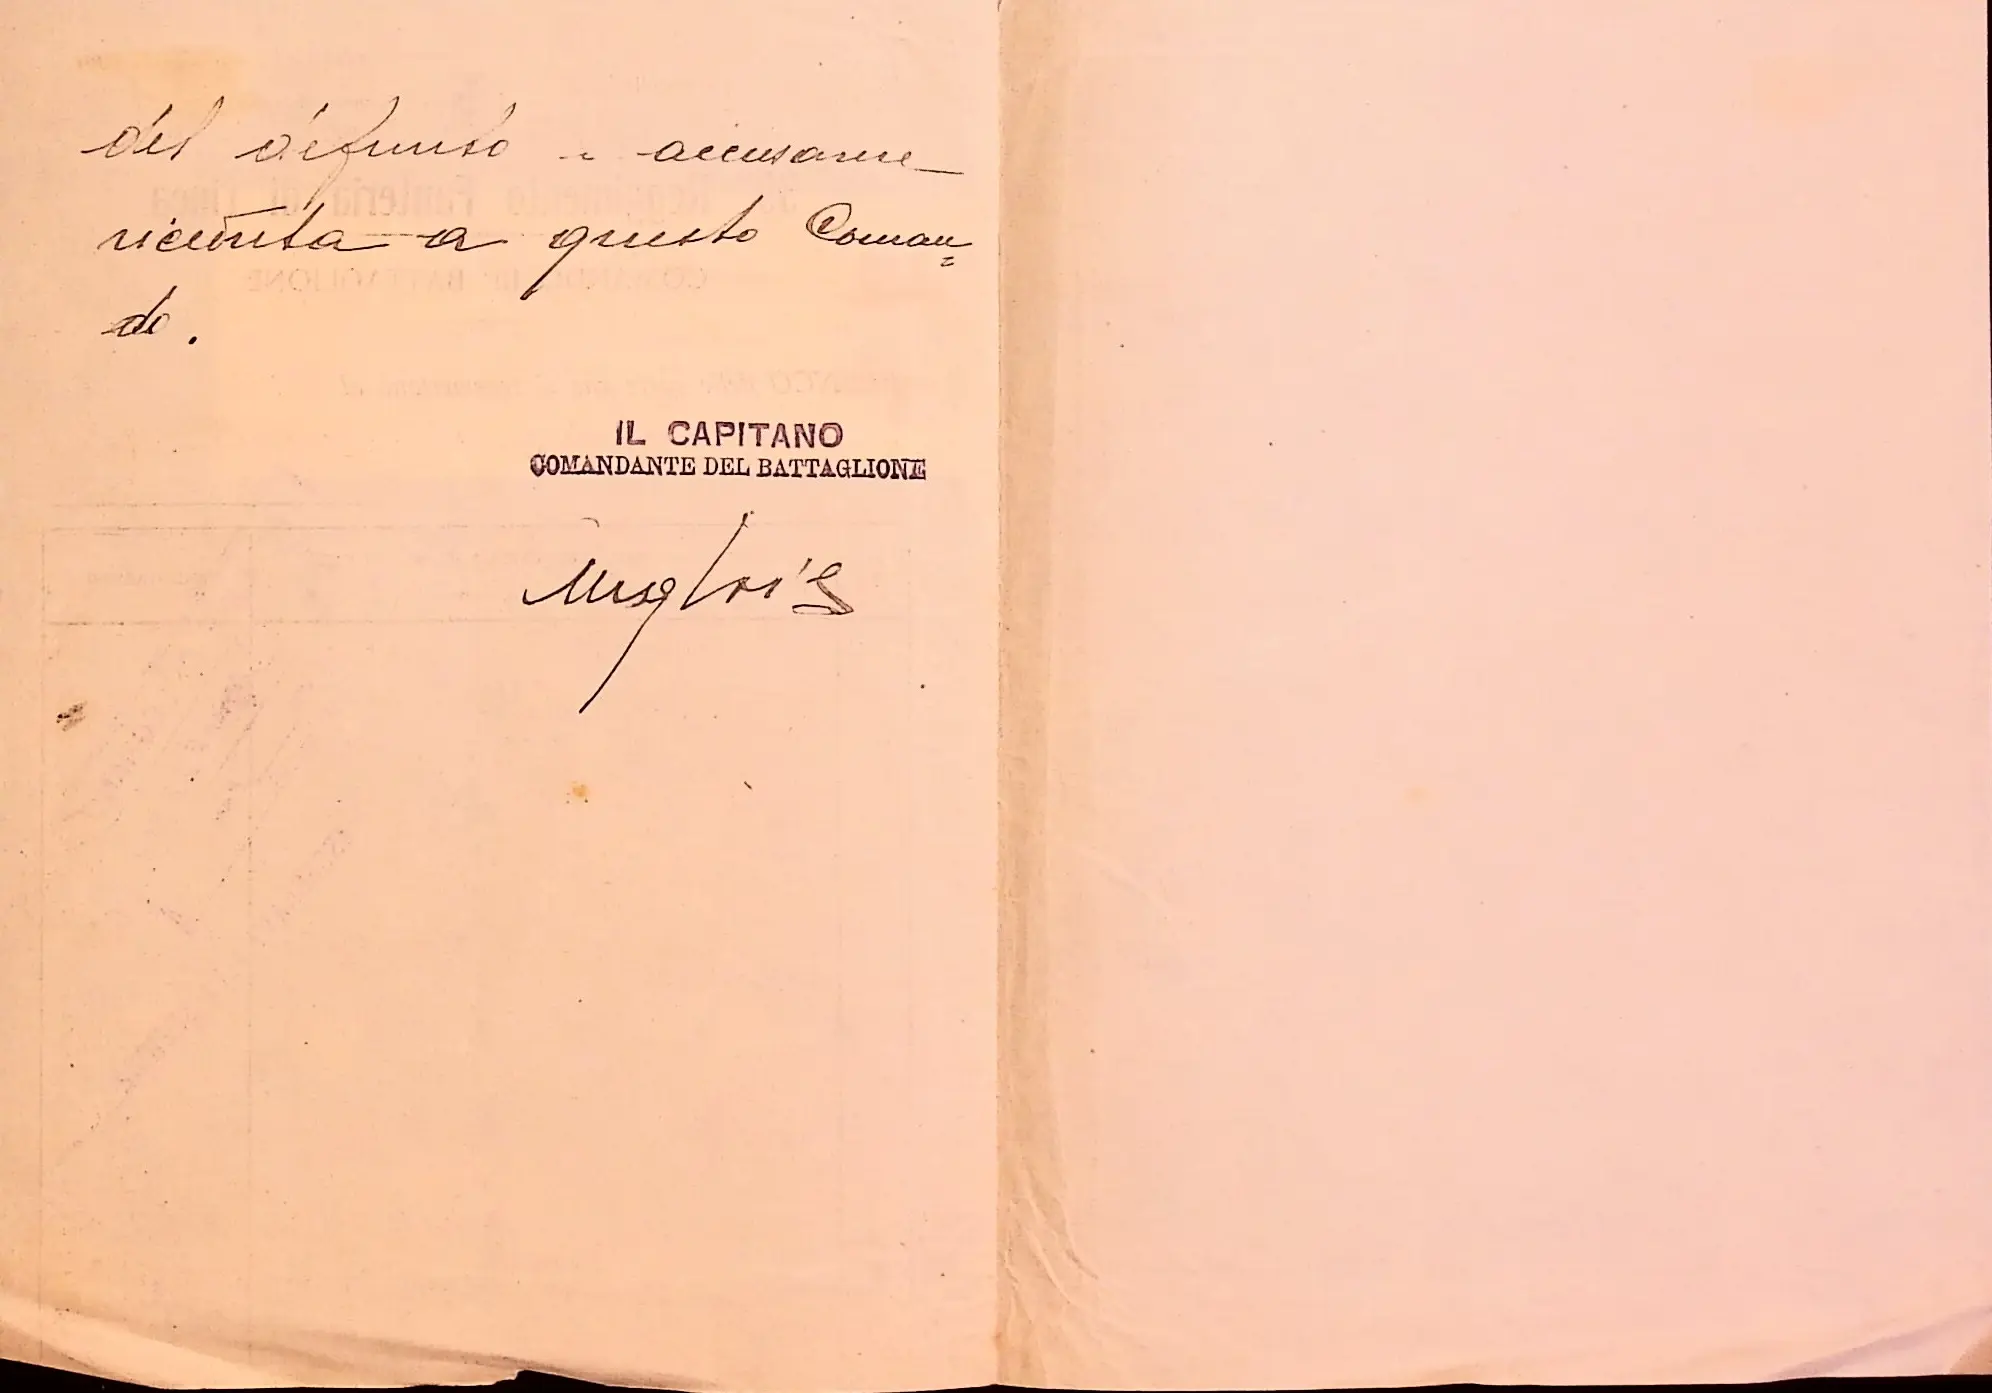 del defunto e accusarne
ricevuta a questo Coman=
do.
IL CAPITANO
COMANDANTE DEL BATTAGLIONE